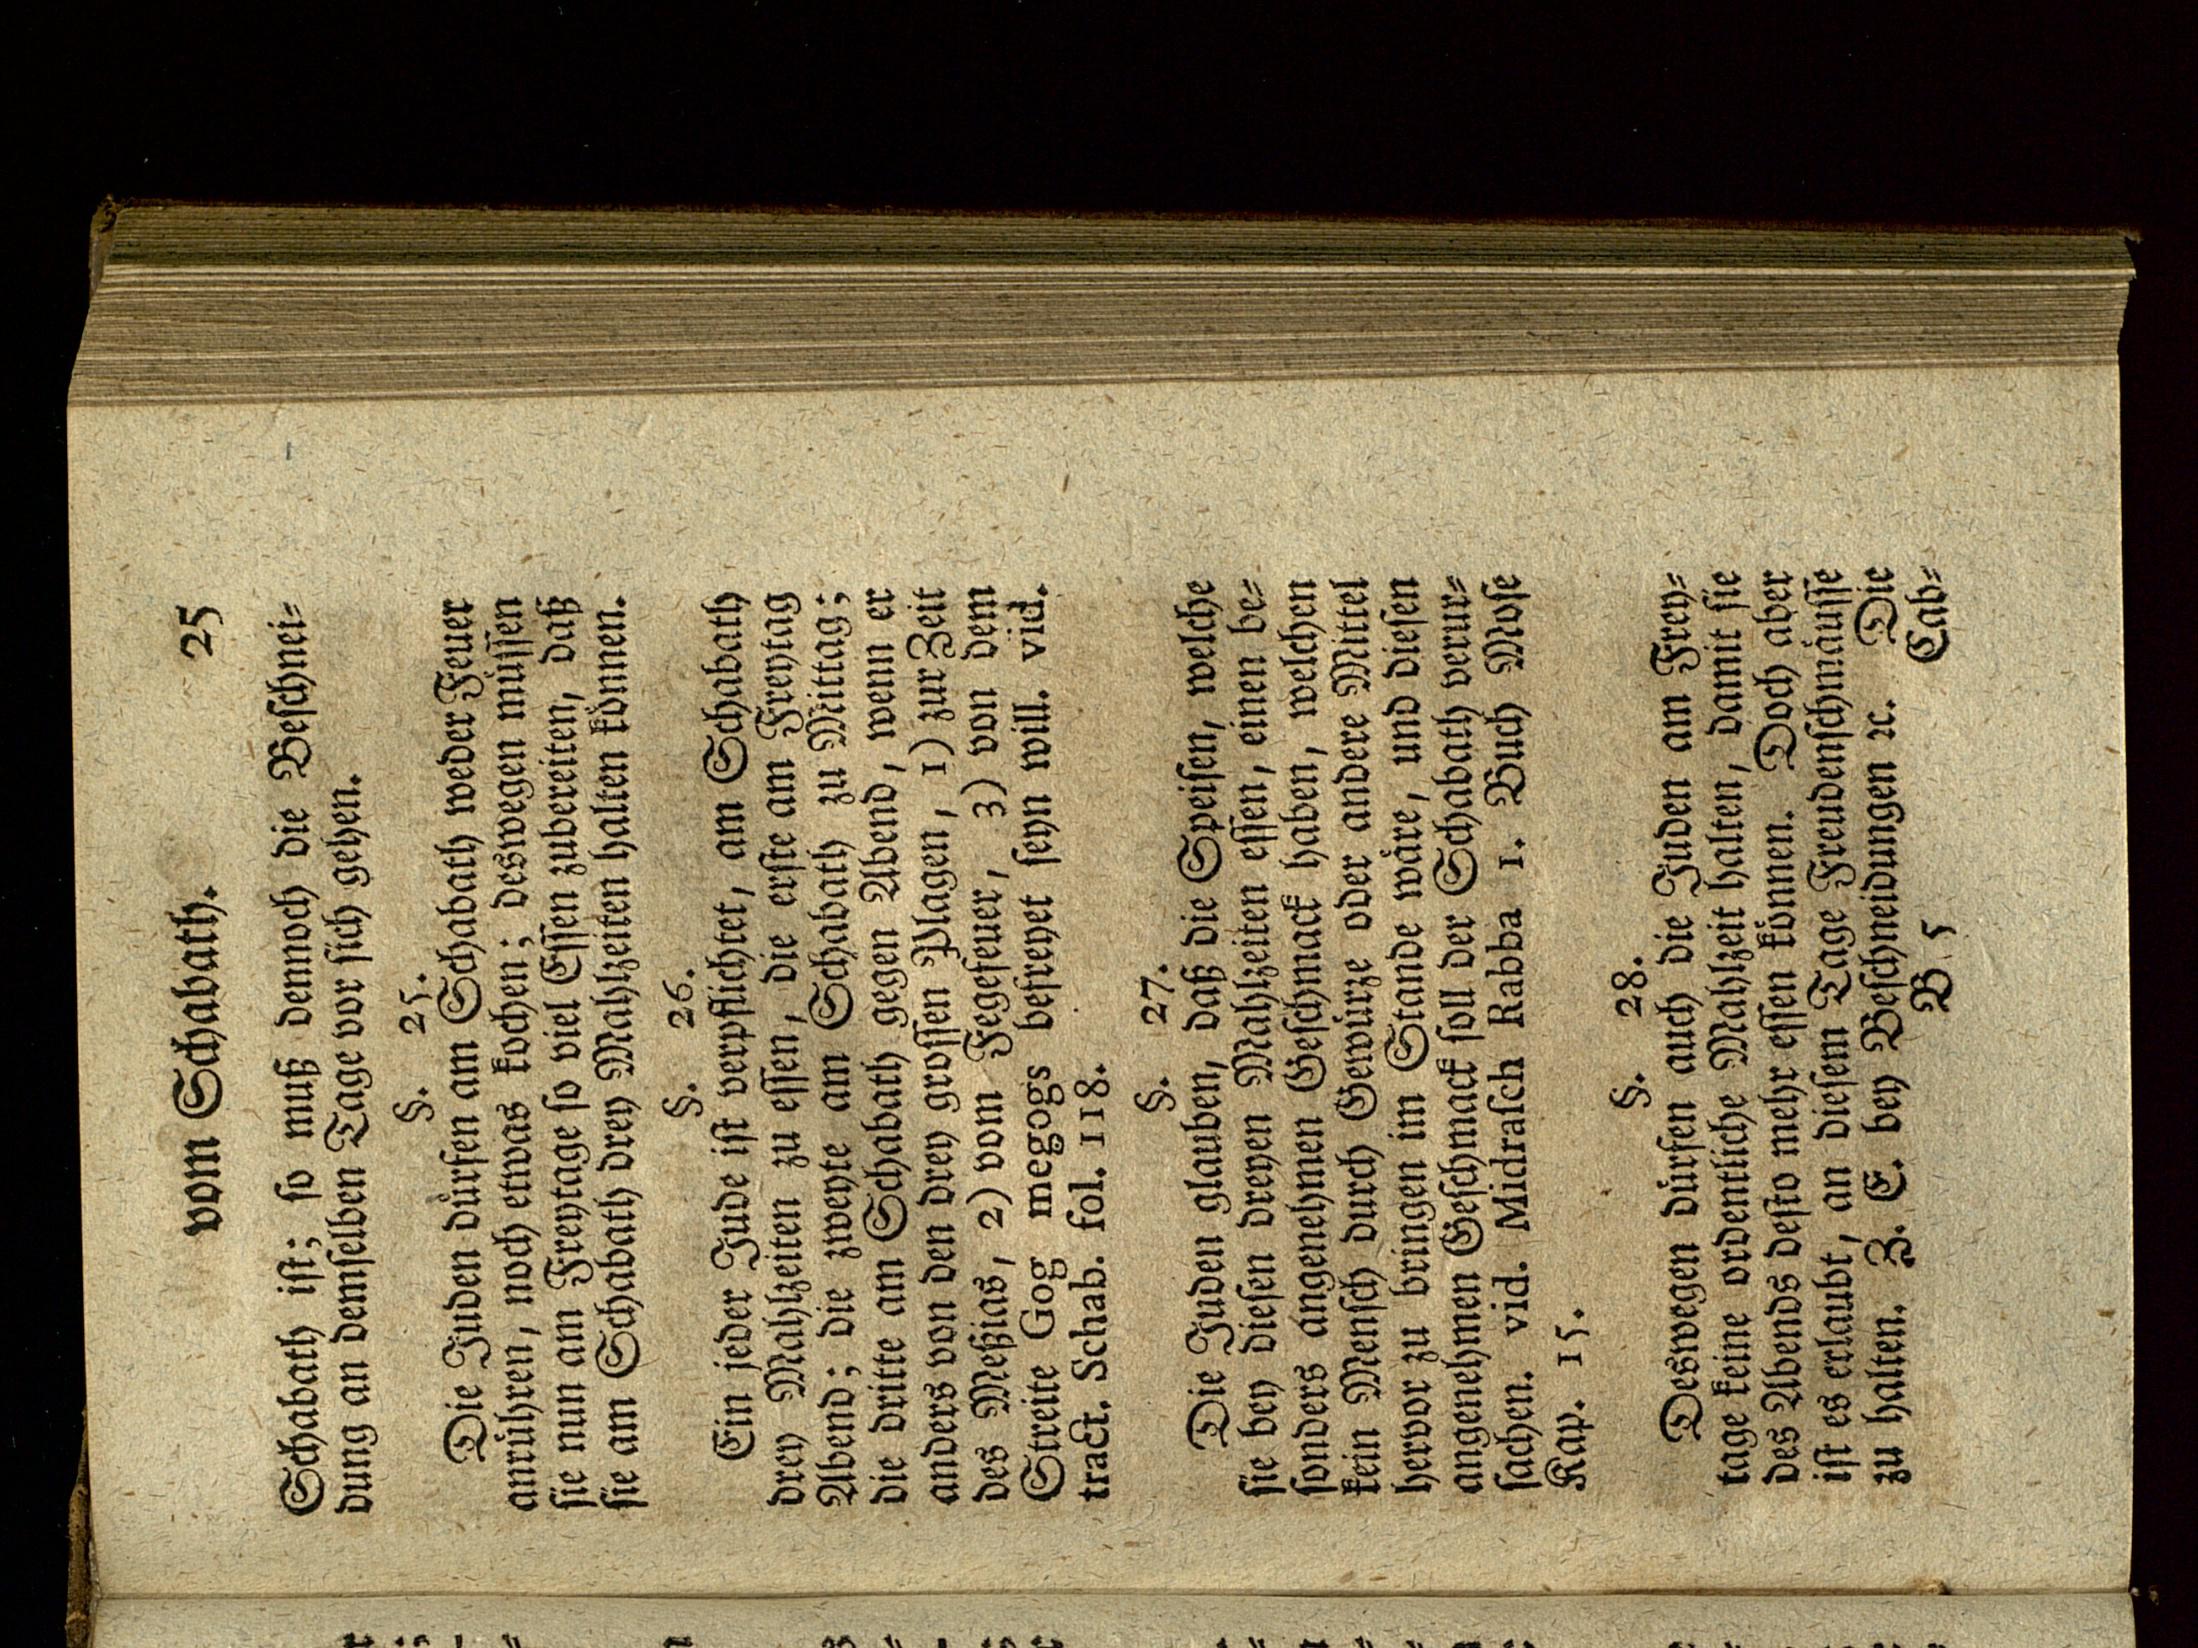 vom Schabath. 25
Schabath ist; so muß dennoch die Beschnei⸗
dung an demselben Tage vor sich gehen.
§. 25.
Die Juden dürfen am Schabath weder Feuer
anrühren, noch etwas kochen; deswegen müssen
sie nun am Freytage so viel Essen zubereiten, daß
sie am Schabath drey Mahlzeiten halten können.
§. 26.
Ein jeder Jude ist verpflichtet, am Schabath
drey Mahlzeiten zu essen, die erste am Freytag
Abend; die zweyte am Schabath zu Mittag;
die dritte am Schabath gegen Abend, wenn er
anders von den drey grossen Plagen, 1) zur Zeit
des Meßias, 2) vom Fegefeuer, 3) von dem
Streite Gog megogs befreyet seyn will. vid.
tract. Schab. fol. 118.
§. 27.
Die Juden glauben, daß die Speisen, welche
sie bey diesen dreyen Mahlzeiten essen, einen be⸗
sonders angenehmen Geschmack haben, welchen
kein Mensch durch Gewürze oder andere Mittel
hervor zu bringen im Stande wäre, und diesen
angenehmen Geschmack soll der Schabath verur⸗
sachen. vid. Midrasch Rabba 1. Buch Mose
Kap. 15.
§. 28.
Deswegen dürfen auch die Juden am Frey⸗
tage keine ordentliche Mahlzeit halten, damit sie
des Abends desto mehr essen können. Doch aber
ist es erlaubt, an diesem Tage Freudenschmäusse
zu halten. Z. E. bey Beschneidungen ꝛc. Die
B 5 Cab⸗